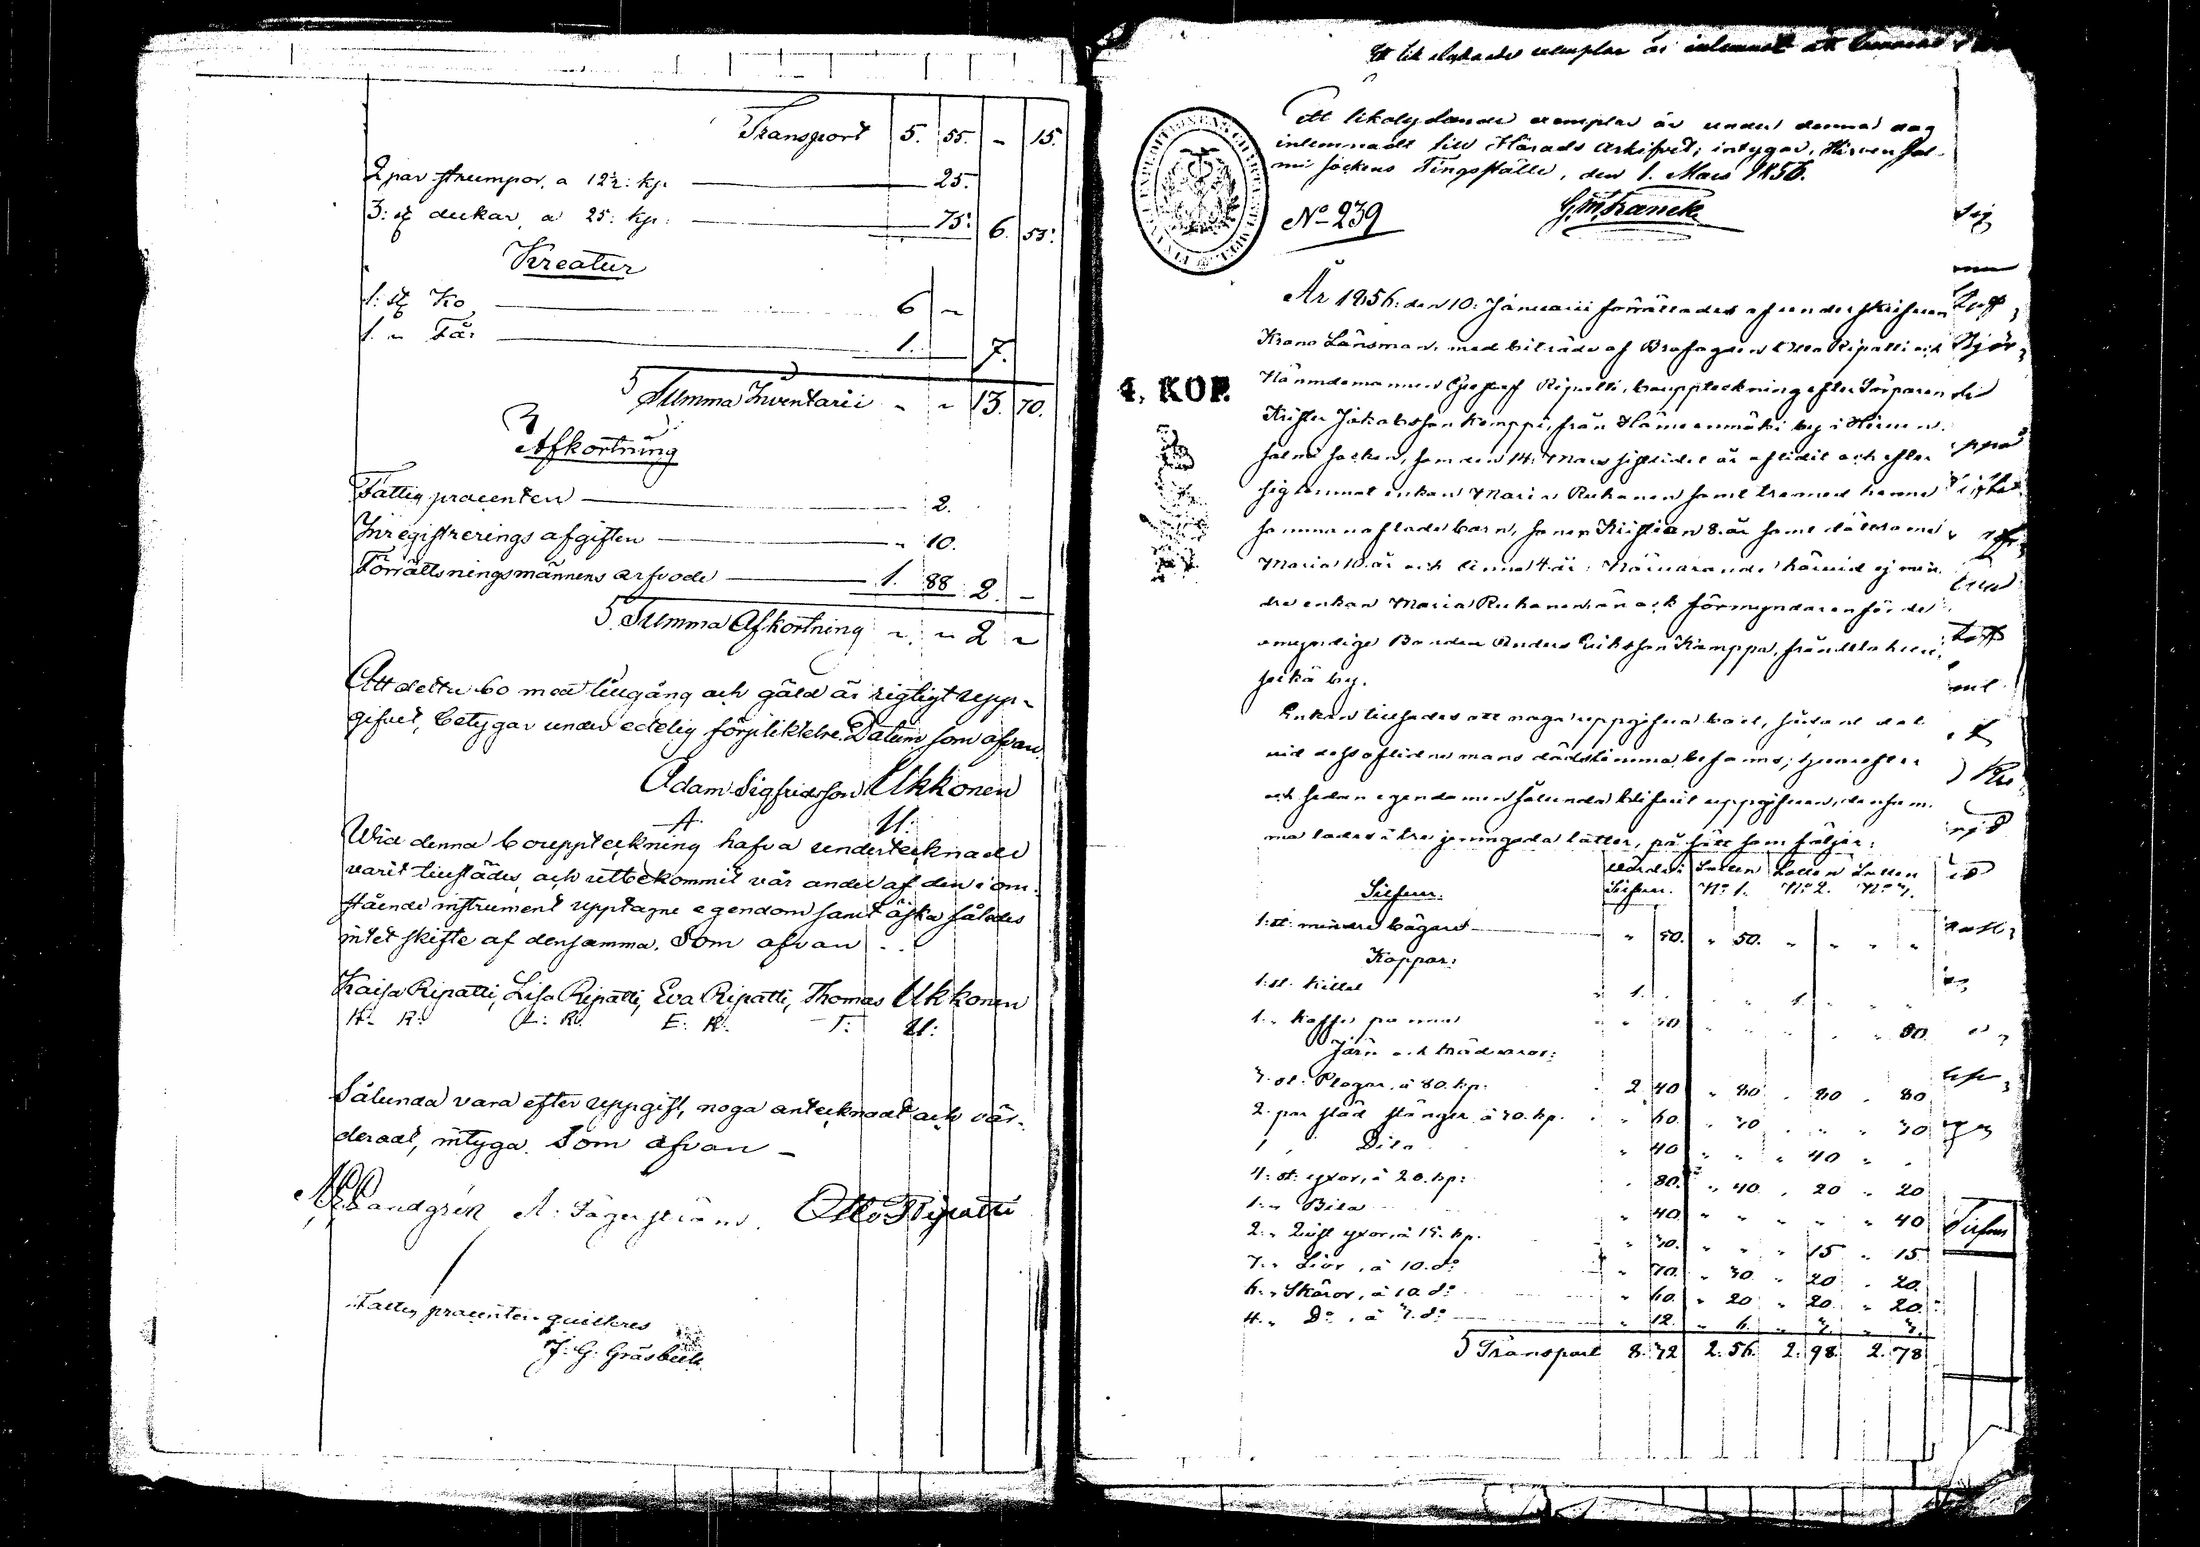 Transport 5. 55. - 15.
2 par strumpor, a 12½: kp. 25.
3: st dukar, a 25: kp: 75: 6. 55:
Kreatur
1: st Ko 6 -
1. " Får 1. 7.
Summa Inventarii - - 13. 70.
Afkortning
Fattig procenten 2.
Inregistrerings afgiften - 10.
Förrättningsmännens arfvode 1. 88 2. -
Summa Afkortning - - 2 -
Att detta bo med tillgång och gäld är rigtigt upp-
gifvet, betygar under edelig förpliktelse. Datum som ofvan
Adam Sigfridsson Ukkonen
A. U:
Wid denna bouppteckning hafva undertecknade
varit tillstädes och utbekommit vår andel af den i om-
stående instrument upptagne egendom samt äska således
intet skifte af densamma. Som ofvan
Kaisa Ripatti, Lisa Ripatti, Eva Ripatti, Thomas Ukkonen
K: R: L: R: E: R: T: U:
Sålunda vara efter uppgift, noga antecknadt och vär-
deradt, intyga. Som ofvan -
Sandgrén A: Fågerström. Otto Ripatti
Fattig procenten quitteras
J. G. Gråsbeck
Ett lika lydande exemplar är inlemnat att
Ett likalydande exemplar är under denna dag
inlemnadt till Härads Arkifvet; intygar. Hirvensal-
mi sockens Tingställe, den 1. Mars 1856.
No 239
4. KOP.
År 1856: den 10: Januarii förrättades af underskrifven
Krono Länsman, med biträde af Brofogden Otto Ripatti och
Nämndemannen Ripatti, bouppteckning efter Torparen
Krister Jakobsson Komppi, från Hämeenmäki by i Hirven-
salmi socken, som den 14: Mars sistlidet år aflidit och efter
sig lemnat enkan Maria Ruhanen samt tre med henne
sammanaflade barn, sonen Kristian 8. år samt döttrarne
Maria 10. år och Anna 4. år: Närvarande härvid ej min-
dre enkan Maria Ruhanen än ock förmyndaren för de
omyndige Bonden Anders Eriksson Komppa, från
by.
Enkan tillsades att noga uppgifva boet, sådant det
vid dess aflidne mans dödstimma befanns; hvarefter
och sedan egendomen sålunda blifvit uppgifven, densam-
ma lades i tre jemngoda lotter, på sätt som följer:
Silfver. Värde i Silfver. Lotten No 1. Lotten No 2. Lotten No 3.
1. st: mindre bägare " 50. " 50. " " " "
Koppar:
1. st. Kittel " 1. " " 1. " "
1. " Kaffe panna " " 80.
Järn och trädvaror:
3. st: Plogar, á 80. kp. 2. 40 " 80 " 80 " 80
2. par städ stänger á 30. kp. " 60. " 30 " " " 30
1 " Dito " 40 " " " 40 " "
4: st: yxor, á 20. kp: " 80. " 40. " 20 " 20
1. " Bila " 40 " " " " " 40
2. " yxor, á 15. kp. " 30. " " " 15 " 15
7. " Liar, á 10. do " 70. " 30. " 20 " 20.
6. " Skäror, á 10. do " 60. " 20 " 20 " 20.
4. " Do, á 3. do " 12. " 6. " 3. " 3.
Transport 8. 72 2. 56. 2. 98. 2. 78